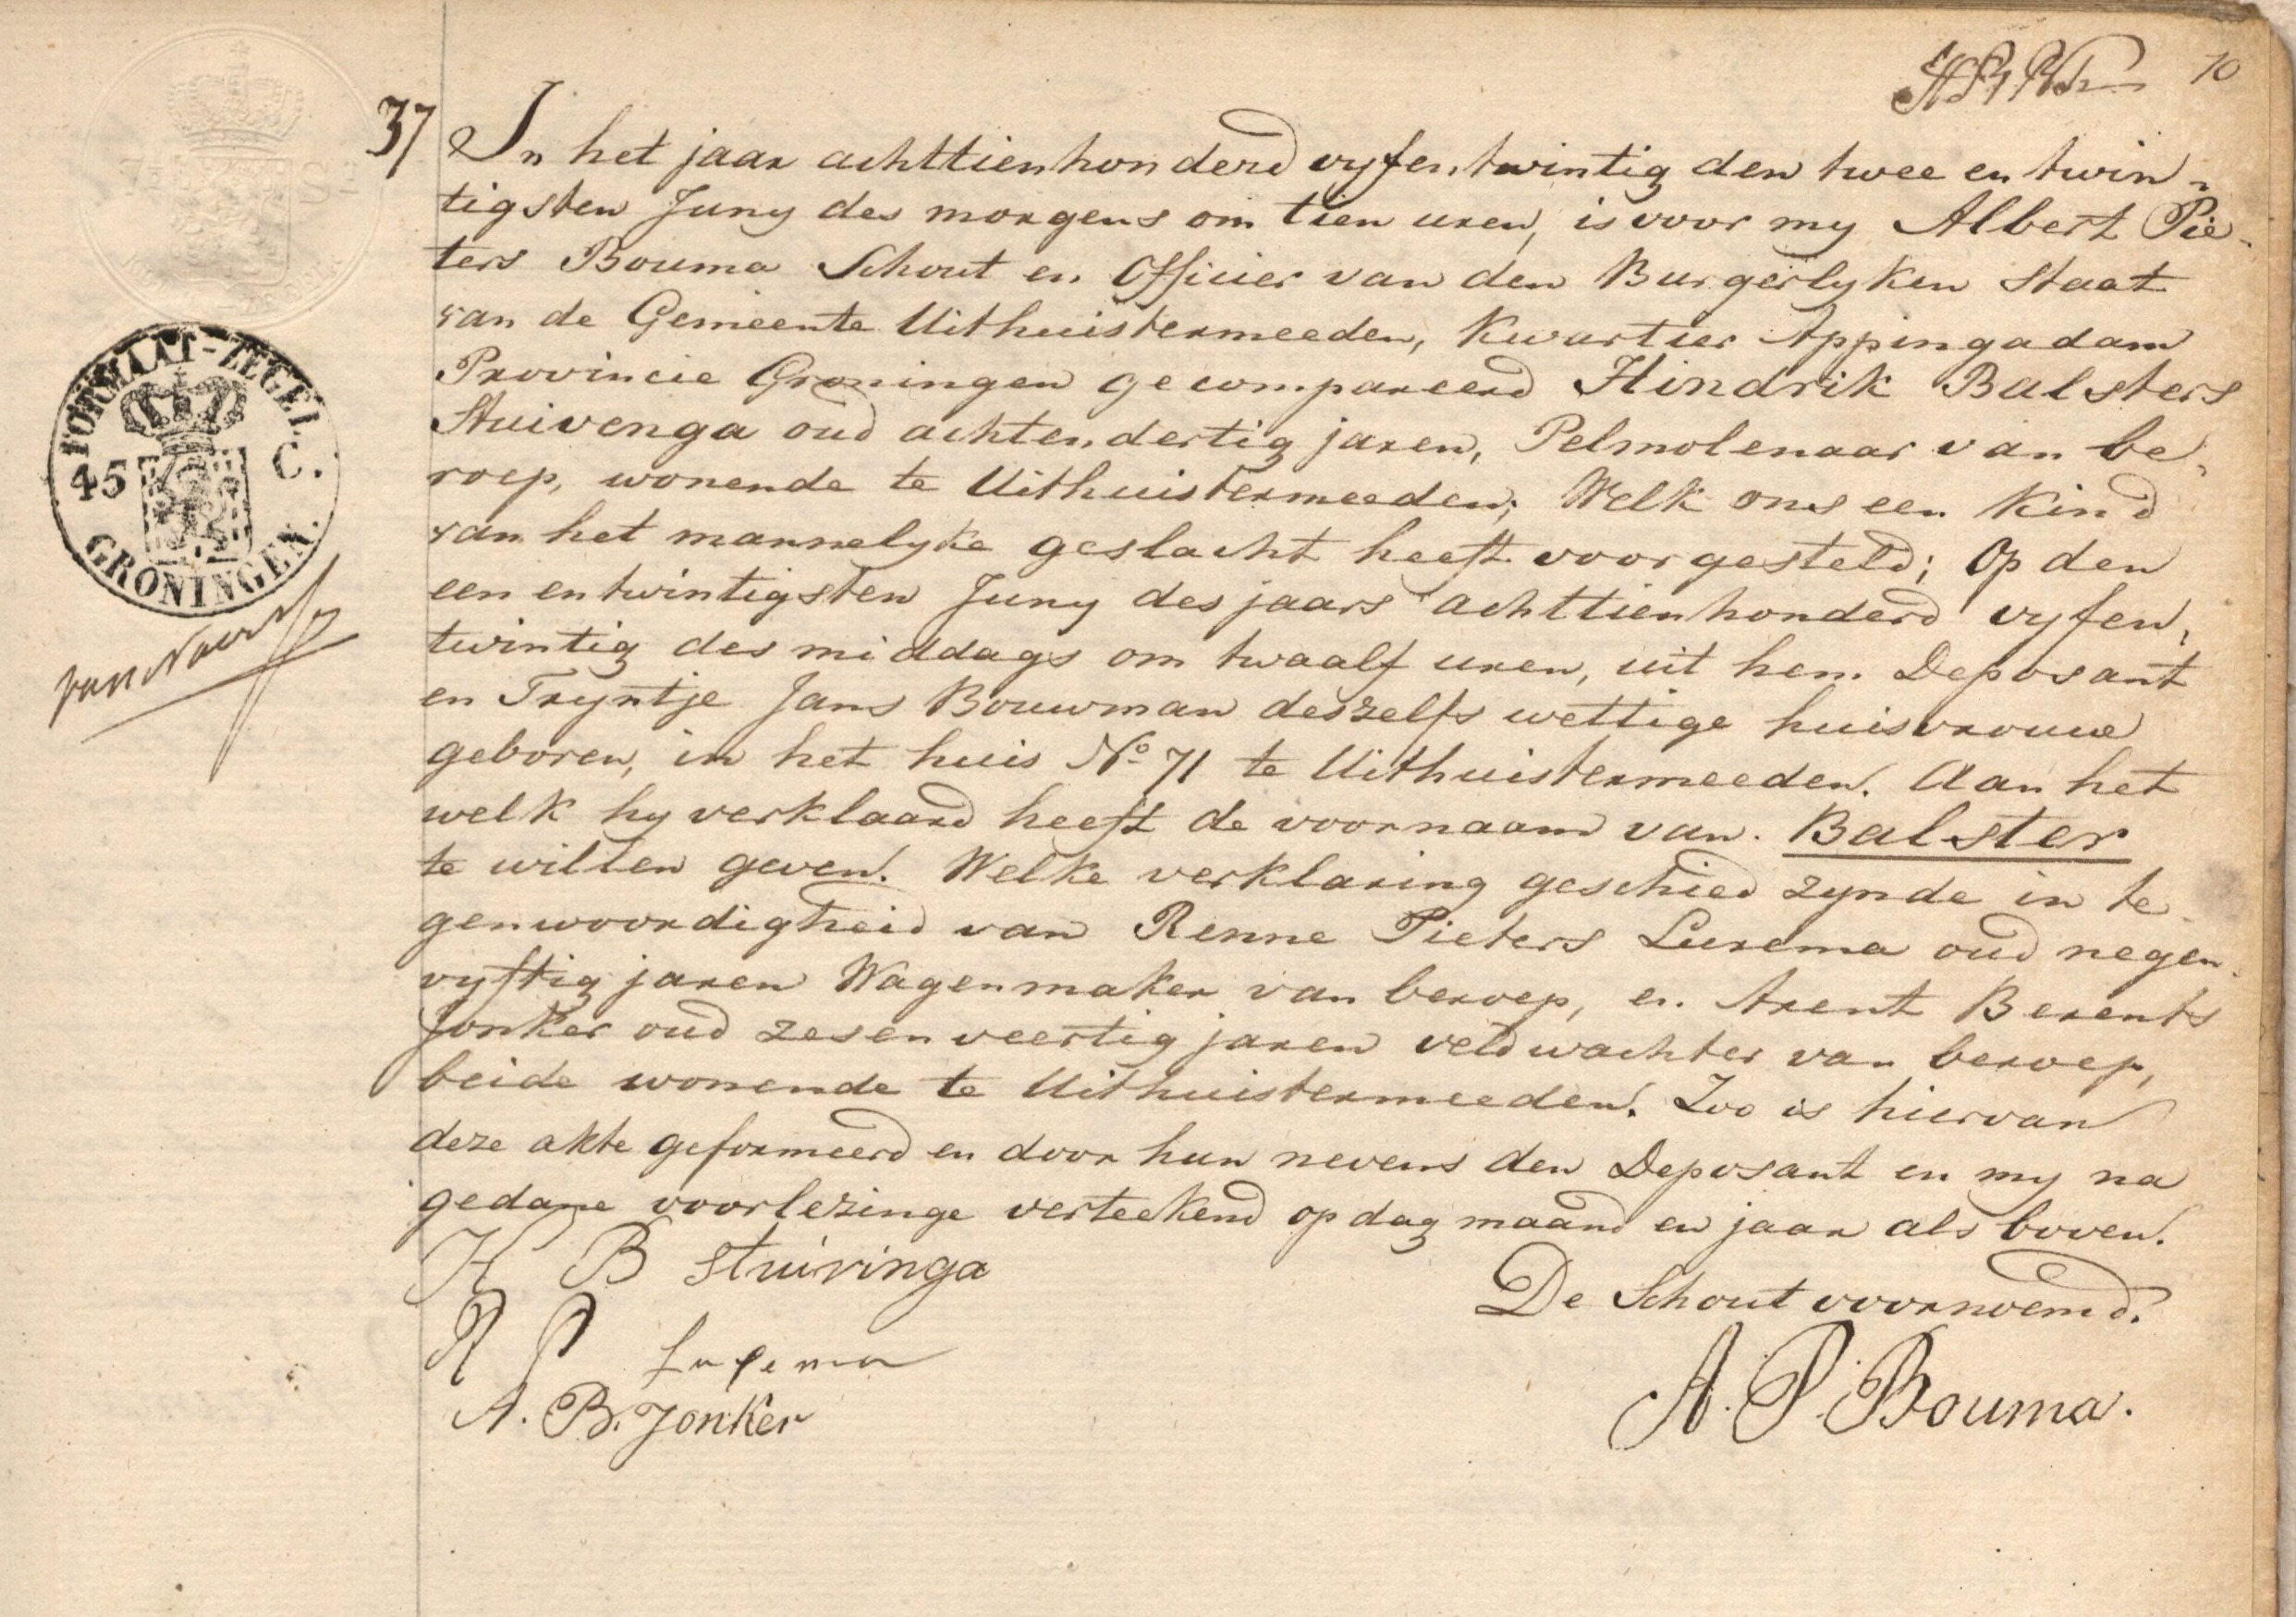 10
37
In het jaar achttienhonderd vyfentwintig den twee en twin-
tigsten Juny des morgens om tien uren, is voor my Albert Pie-
ters Bouma Schout en Officier van den Burgerlyken Staat
van de Gemeente Uithuistermeeden, Kwartier Appingadam
Provincie Groningen gecompareerd Hindrik Balsters
Stuivenga oud achtendertig jaren, Pelmolenaar van be-
roep, wonende te Uithuistermeeden; Welk ons een Kind
van het mannelyke geslacht heeft voorgesteld; Op den
een en twintigsten Juny des jaars achttienhonderd vyfen-
twintig des middags om twaalf uren, uit hem Deposant
en Tryntje Jans Bouwman deszelfs wettige huisvrouwe
geboren, in het huis No 71 te Uithuistermeeden. Aan het
welk hy verklaard heeft de voornaam van. Balster
te willen geven. Welke verklaring geschied zynde in te-
genwoordigheid van Renne Pieters Luxema oud negen-
vyftig jaren Wagenmaker van beroep, en Arent Berents
Jonker oud zesenveertig jaren veldwachter van beroep,
beide wonende te Uithuistermeeden. Zoo is hiervan
deze akte geformeerd en door hun nevens den Deposant en my na
gedane voorlezinge verteekend op dag maand en jaar als boven.
H B Stuivinga
R P
A. B. Jonker
De Schout voornoemd.
A. P. Bouma.
FORMAAT-ZEGEL
45 C.
GRONINGEN.